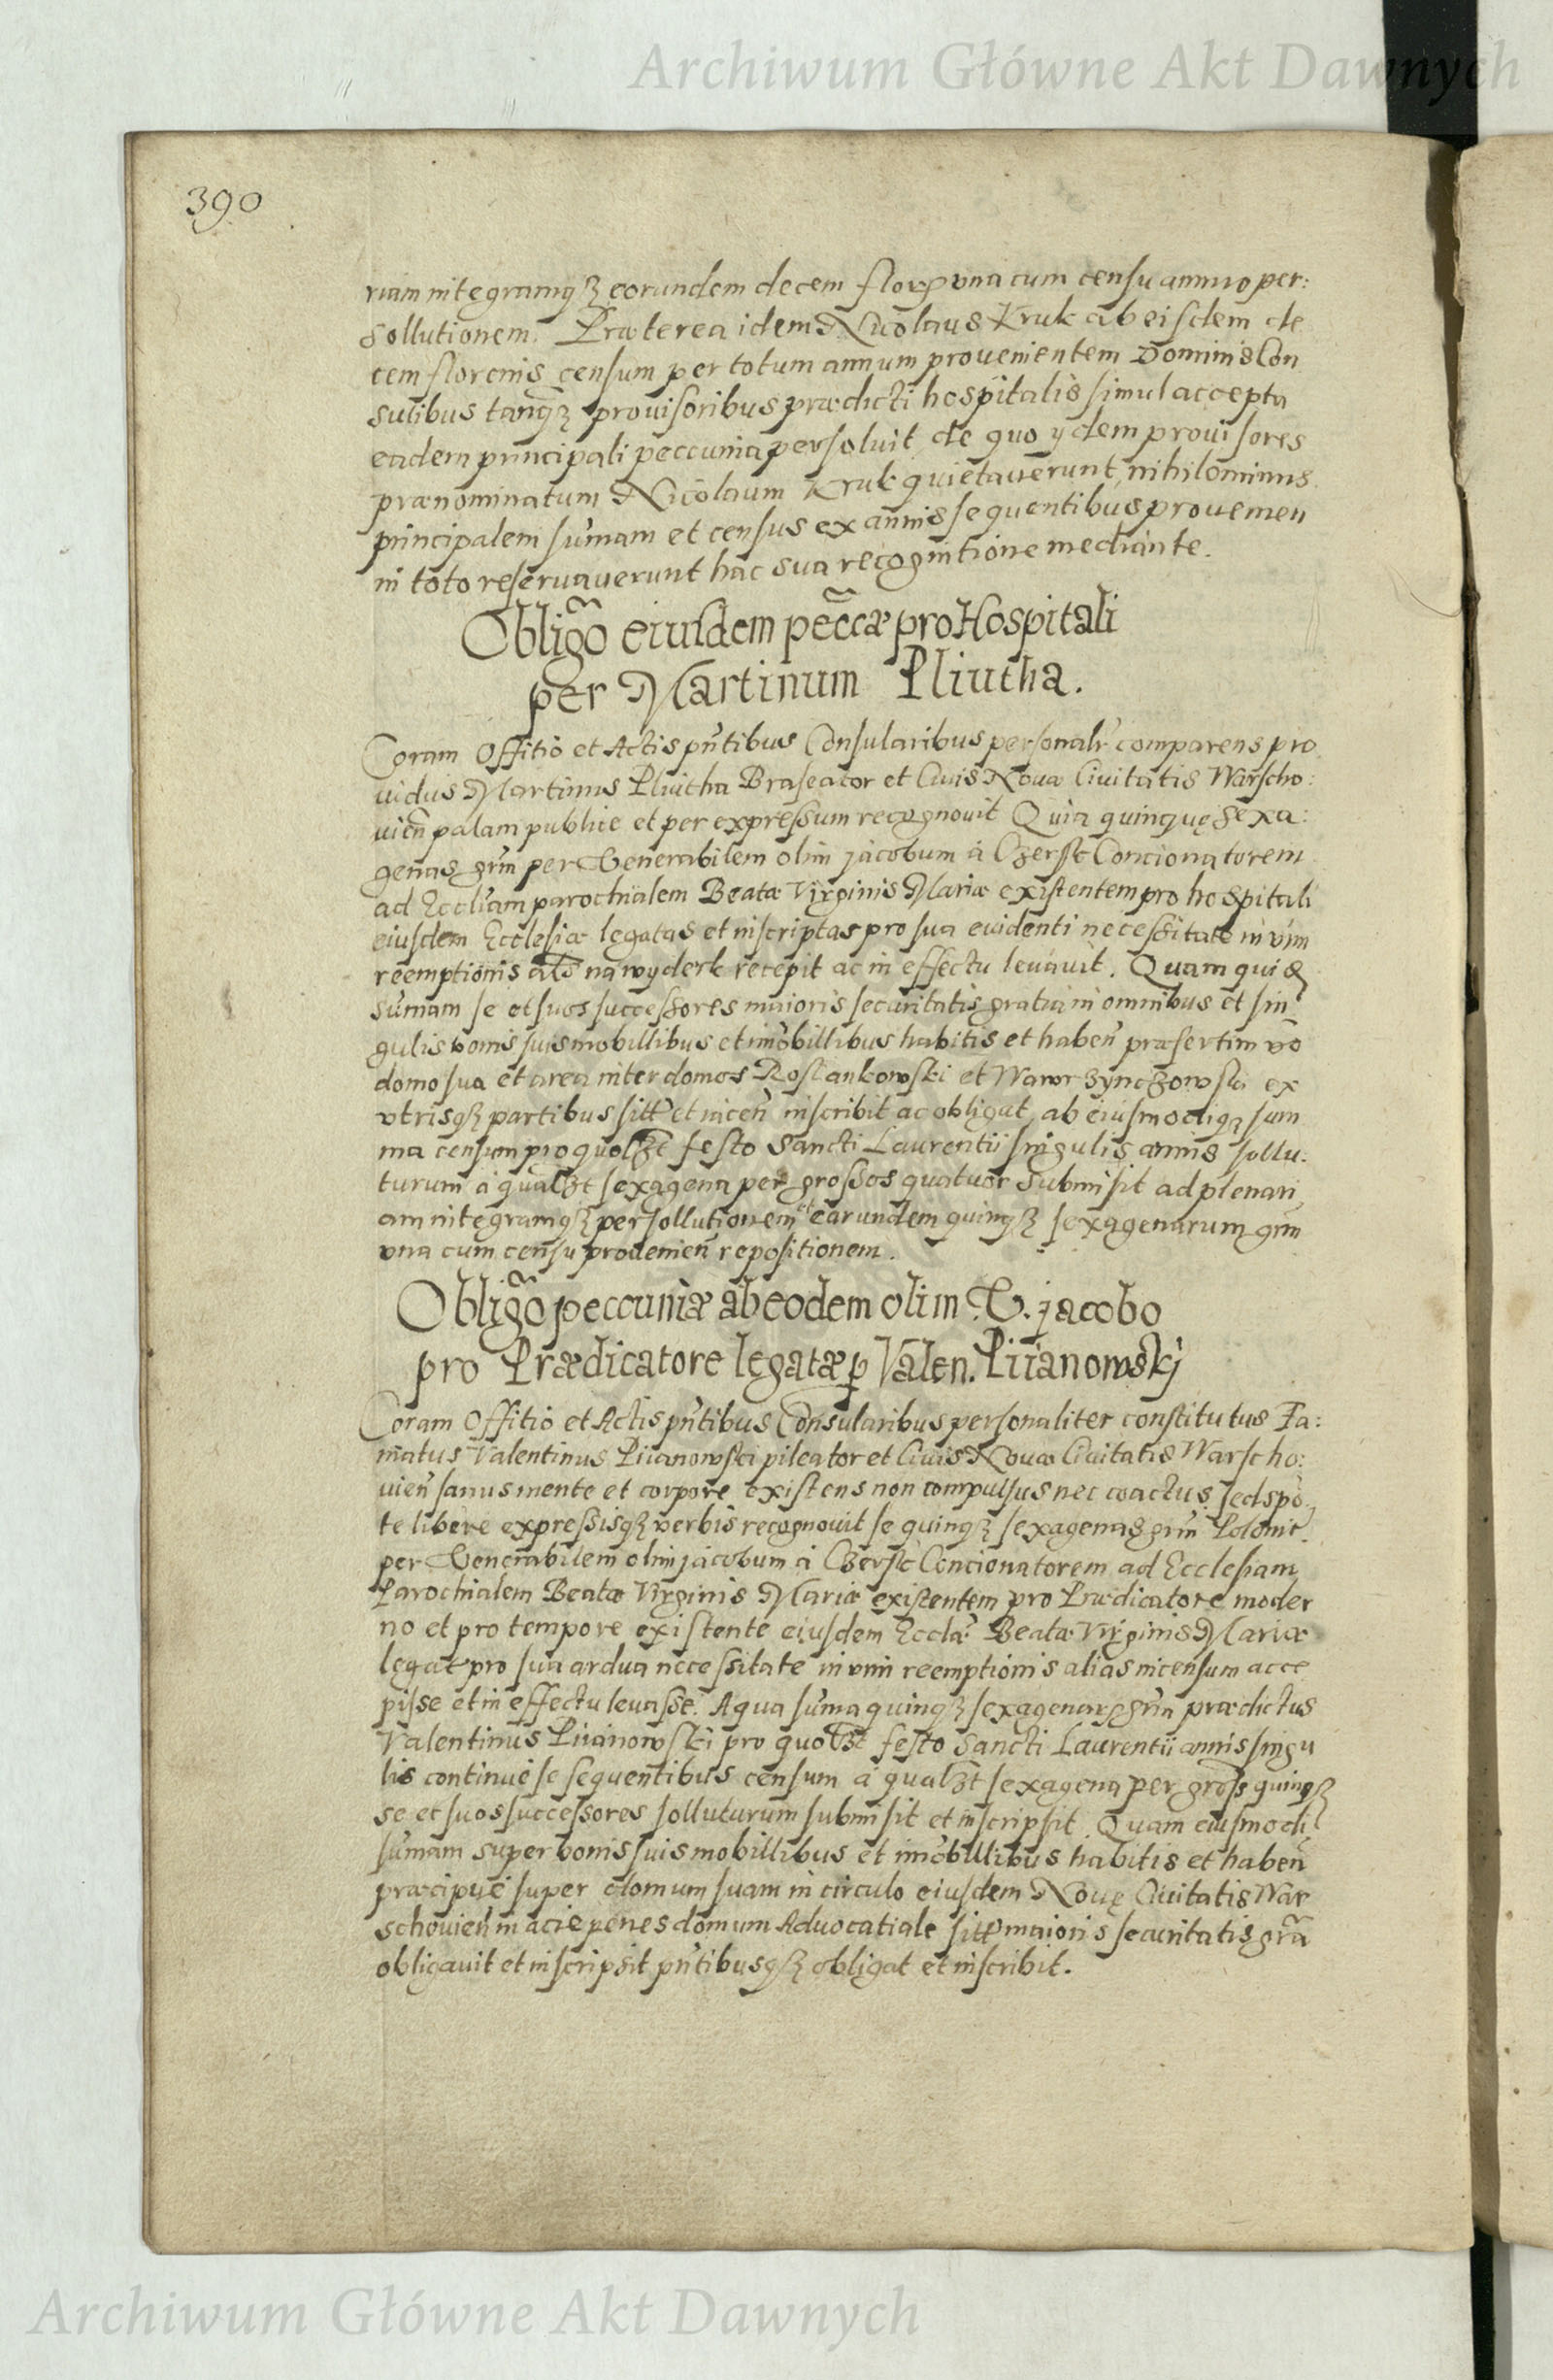 Archiwum Główne Akt Dawnych
390
riam integramqꝫ eorundem decem floꝝ vna cum censu annuo per:
sollutionem. Præterea idem Nicolaus Kruk ab eisdem de
cem florenis censum per totum annum prouenientem Dominis Con
sulibus tanqꝫ prouisoribus prædicti hospitalis simul accepta
eadem principali peccunia persoluit, de quo ydem prouisores
prænominatum Nicolaum Kruk quietauerunt, nihilominus
principalem sum̄am et census ex annis sequentibus prouenien
in toto reseruauerunt hac sua recognitione mediante.
Oblig͠o eiusdem pec̄cæ pro Hospitali
per Martinum Pliutha.
Coram Offitio et Actis pn̄tibus Consularibus personalr̄ comparens pro
uidus Martinus Pliutha Braseator et Ciuis Nouæ Ciuitatis Warscho:
uien̄ palam publice et per expressum recognouit Quia quinque sexa:
genas grn̄ per Venerabilem olim jacobum à Czersk Concionatorem
ad Eccli̅am parochialem Beatæ Virginis Mariæ existentem pro hospitali
eiusdem Ecclesiæ legatas et inscriptas pro sua euidenti necessitate in vim
reemptionis al̄s na wyderk recepit ac in effectu leuauit. Quam quid
sum̄am se et suos successores maioris securitatis gratia in omnibus et sin
gulis bonis suis mobillibus et imobillibus habitis et haben̄ præsertim vō
domo sua et area inter domos Rostankowski et Wawrzynczowski ex
vtrisqꝫ partibus sitt et iacen̄ inscribit ac obligat, ab eiusmodiqꝫ sum
ma censum pro quolꝫt festo Sancti Laurentii singulis annis sollu:
turum à qualꝫt sexagena per grossos quatuor submisit ad plenari
am integramqꝫ persollutionem et earundem quinqꝫ sexagenarum grn̄
vna cum censu prouenien̄ repositionem.
Oblig͠o peccuniæ ab eodem olim V. jacobo
pro Prædicatore legatæ ꝑ Valen. Piianowskj
Coram Offitio et Actis pn̄tibus Consularibus personaliter constitutus Fa:
matus Valentinus Piianowski pileator et Ciuis Nouæ Ciuitatis Warscho:
uien̄ sanus mente et corpore existens non compulsus nec coactus, sed spō
te libere expressisqꝫ verbis recognouit se quinqꝫ sexagenas grn̄ Polonic
per Venerabilem olim jacobum à Czersk Concionatorem ad Ecclesiam
Parochialem Beatæ Virginis Mariæ existentem pro Prædicatore moder
no et pro tempore existente eiusdem Eccl̄æ Beatæ Virginis Mariæ
legat pro sua ardua necessitate in vim reemptionis alias in censum acce
pisse et in effectu leuasse. A qua sum̄a quinqꝫ sexagenaꝝ grn̄ prædictus
Valentinus Piianowski pro quolꝫt festo Sancti Laurentii annis singu
lis continue se sequentibus censum à qualꝫt sexagena per gross quinqꝫ
se et suos successores solluturum submisit et inscripsit. Quam eiusmodi
sum̄am super bonis suis mobillibus et imobillibus habitis et haben̄
præcipue super domum suam in circulo eiusdem Nouę Ciuitatis War
schouien̄ in acie penes domum Aduocatiale sitt maioris securitatis gr̄a
obligauit et inscripsit pn̄tibusqꝫ obligat et inscribit.
Archiwum Główne Akt Dawnych